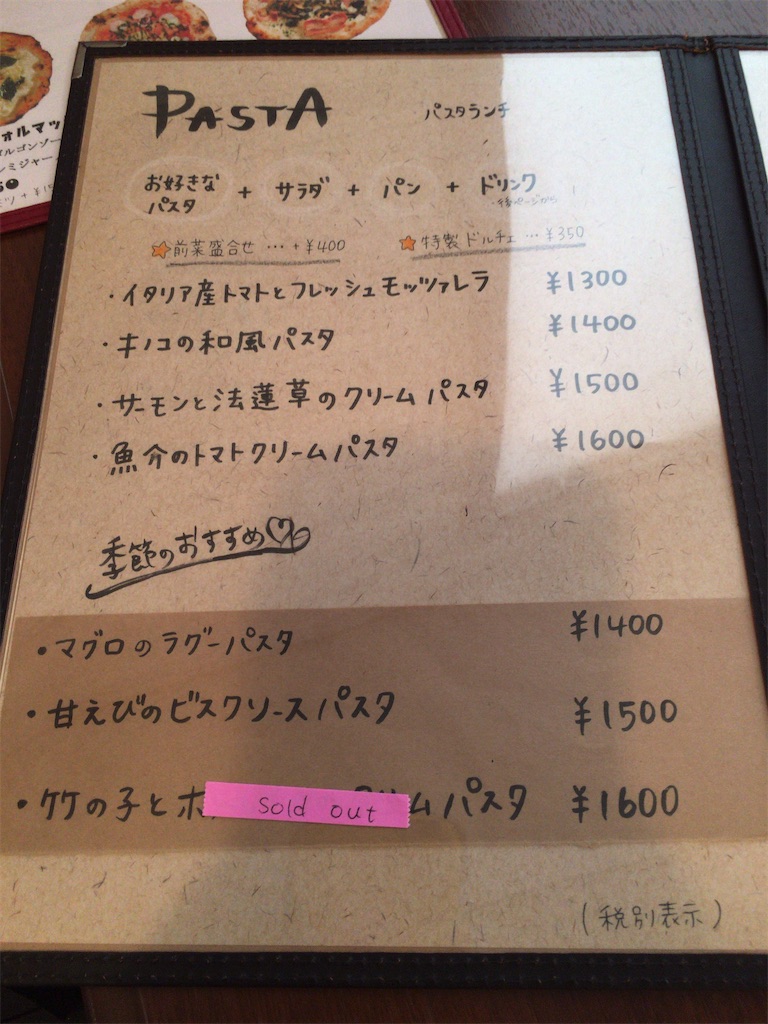 PASTA パスタランチ
お好きなパスタ + サラダ + パン + ドリンク
前菜盛合せ … +¥400 特製ドルチェ … ¥350
・イタリア産トマトとフレッシュモッツァレラ ¥1300
・キノコの和風パスタ ¥1400
・サーモンと法蓮草のクリームパスタ ¥1500
・魚介のトマトクリームパスタ ¥1600
季節のおすすめ♡
・マグロのラグーパスタ ¥1400
・甘えびのビスクソースパスタ ¥1500
・竹の子とホ sold out ムパスタ ¥1600
(税別表示)
オルマッ
ルゴンゾー
ミジャー